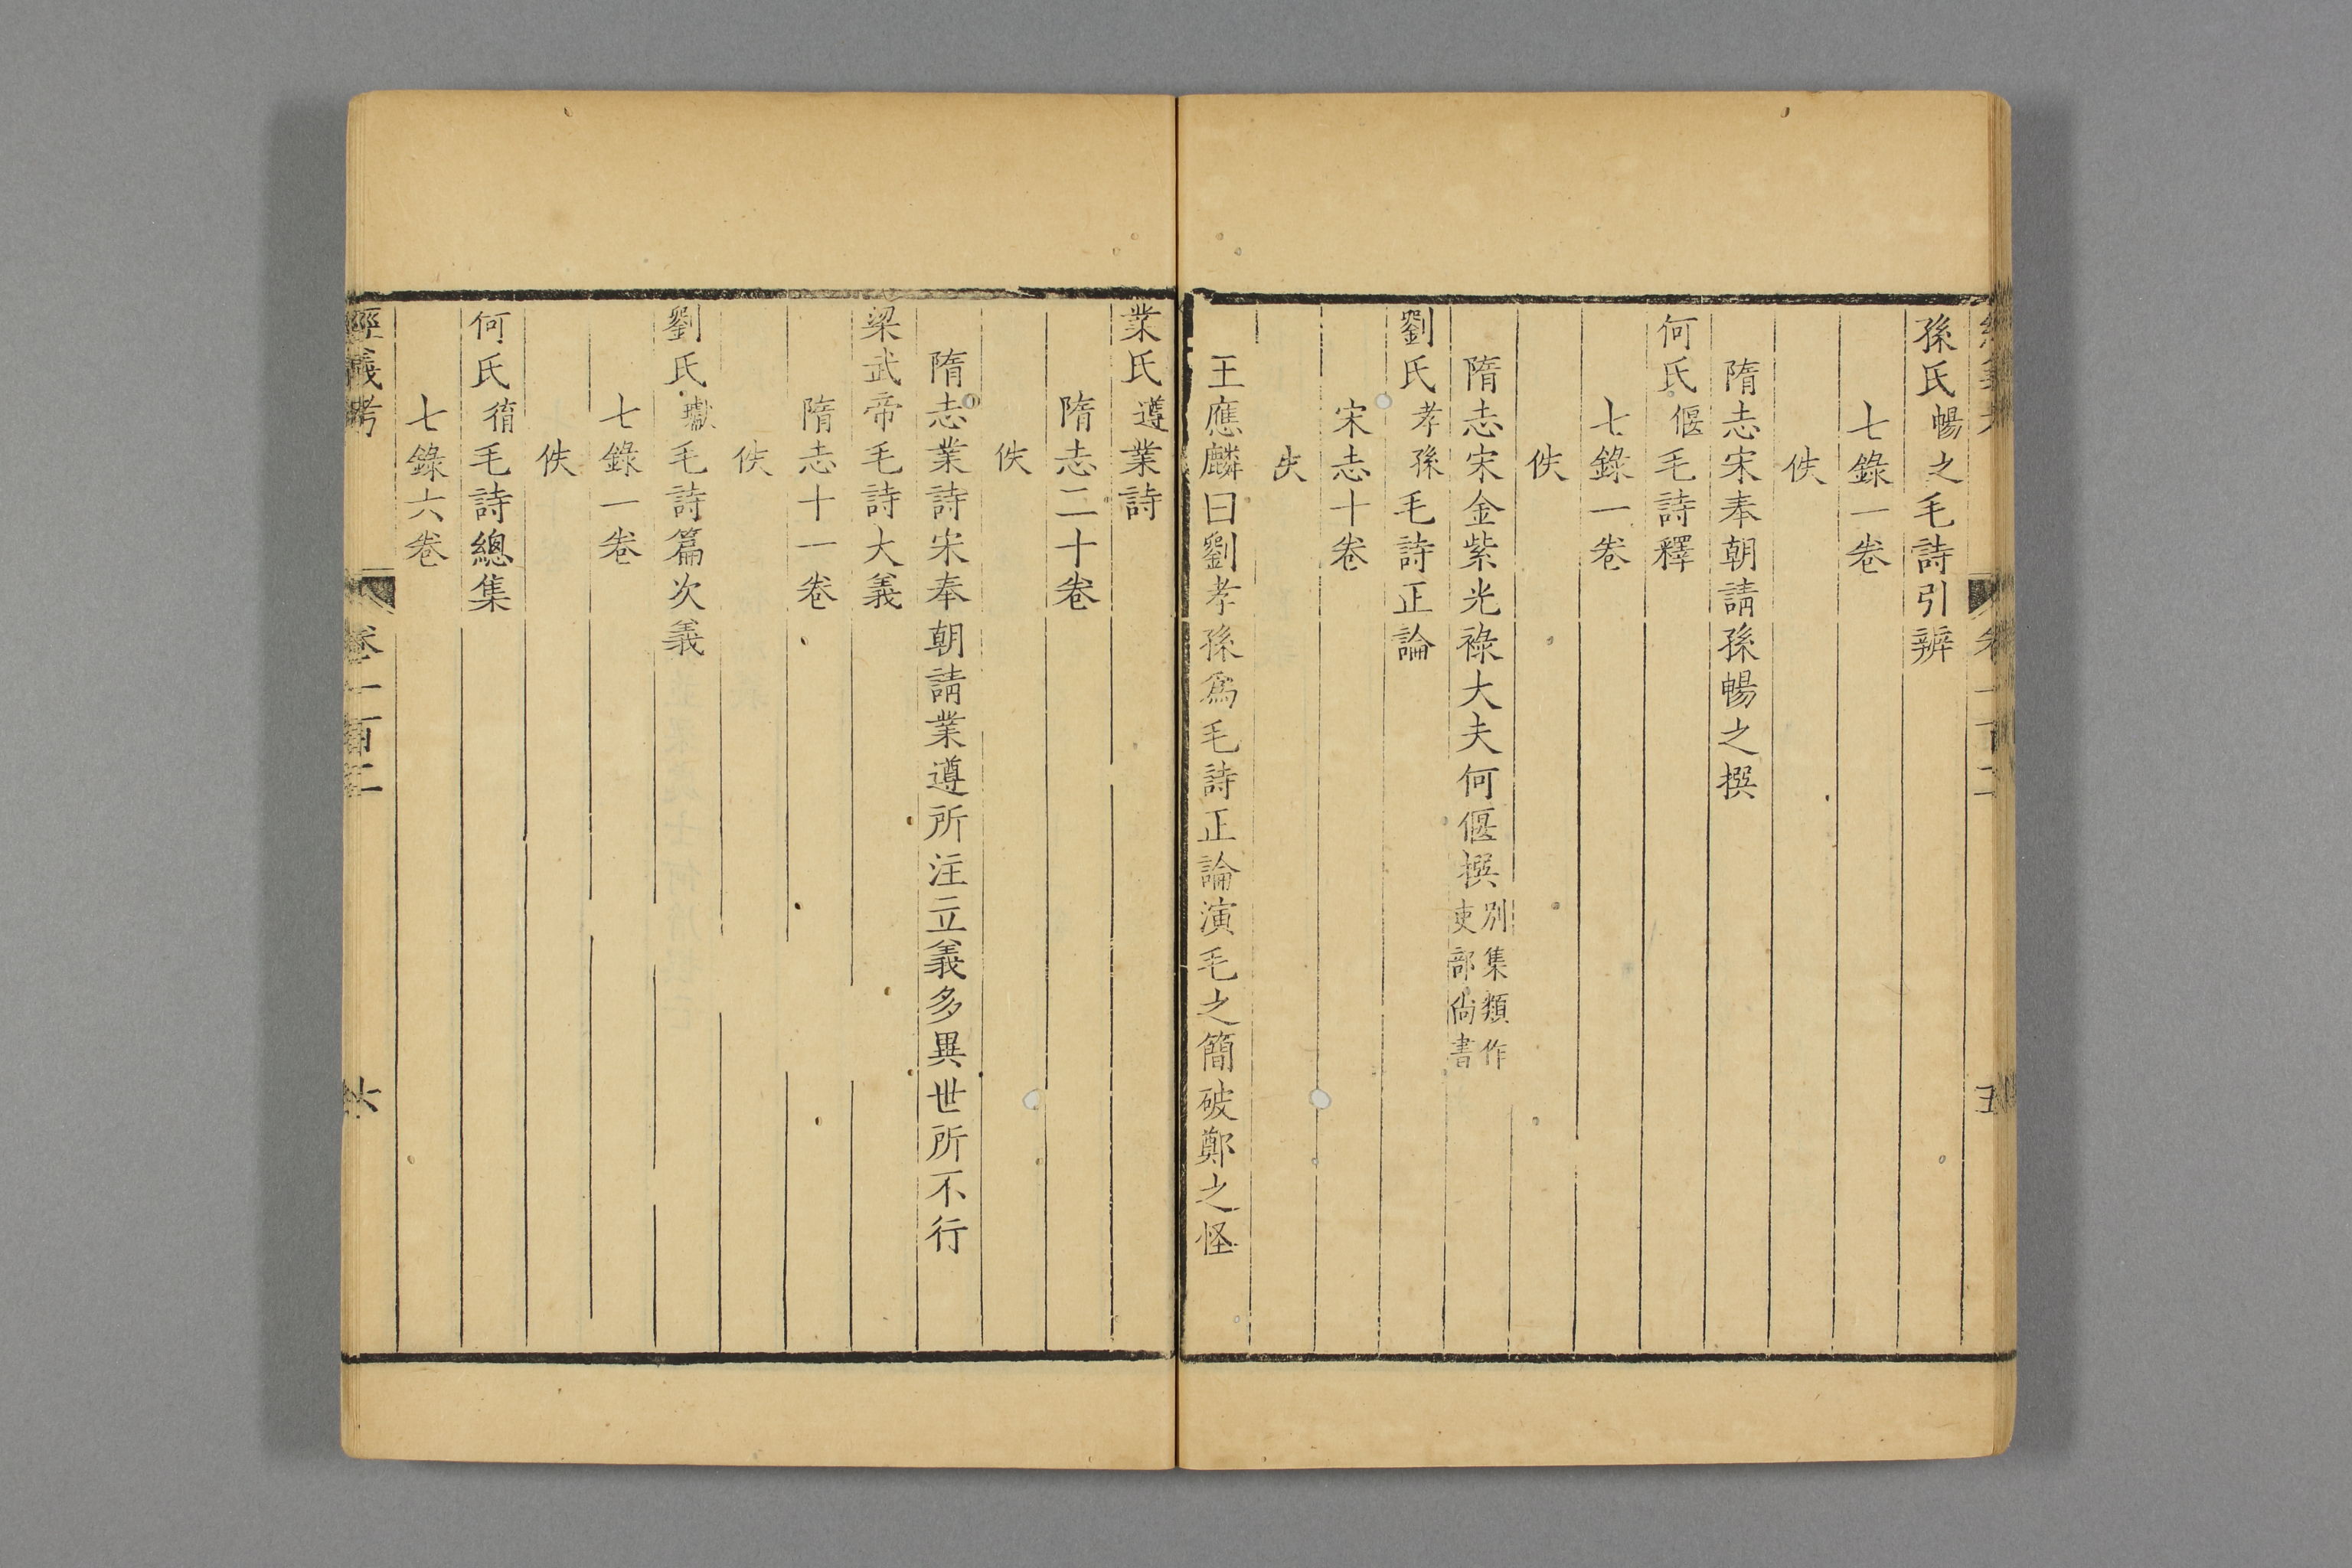 孫氏暢之毛詩引辨
七錄一卷
佚
隋志宋奉朝請孫暢之撰
何氏偃毛詩釋
七錄一卷
佚
隋志宋金紫光祿大夫何偃撰別集類作吏部尚書
劉氏孝孫毛詩正論
宋志十卷
佚
王應麟曰劉孝孫爲毛詩正論演毛之簡破鄭之怪
業氏遵業詩
隋志二十卷
佚
隋志業詩宋奉朝請業遵所注立義多異世所不行
梁武帝毛詩大義
隋志十一卷
佚
劉氏瓛毛詩篇次義
七錄一卷
佚
何氏毛詩總集
七錄六卷
經義考
卷一百三
六